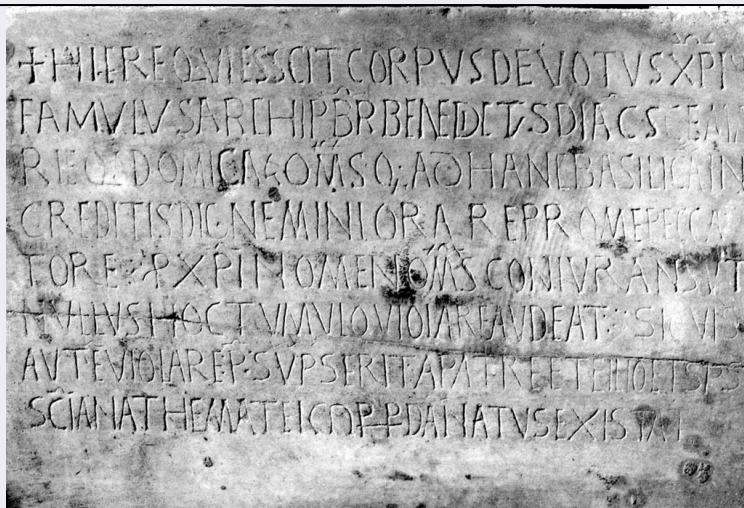 + HIC REQVIESSCIT CORPVS DEVOTVS XPI
FAMVLVS ARCHIPBR BENEDICTVS DIAC SCE MA
RIE Q DOMICA OMS Q; AD HANC BASILICA IN
CREDITIS DIGNEMINI ORARE PRO ME PECCA
TORE P XPI NOMEN OMS CONIVRANS VT
NVLLVS HOC TVMVLO VIOLARE AVDEAT SI QVIS
AVTE VIOLARE P SVPSERIT A PATRE ET FILIO ET SPS
SCI ANATHEMATE DANATVS EXISTAT